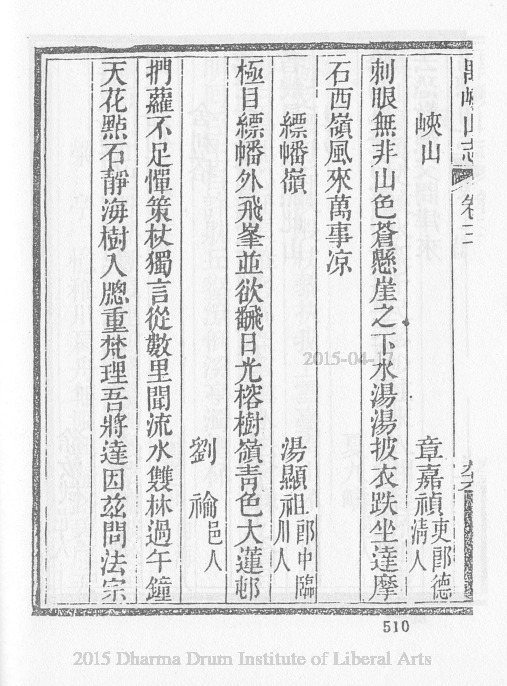 禺峽山志 卷三 
峽山 章嘉禎 吏部德清人
刺眼無非山色蒼懸崖之下水湯湯披衣趺坐達摩
石西嶺風來萬事凉
縹幡嶺 湯顯祖 郎中臨川人
極目縹幡外飛峯並欲翻日光榕樹嶺靑色大蓮邨
劉 禴 邑人
捫蘿不足憚策杖獨言從數里聞流水雙林過午鐘
天花點石靜海樹入牕重梵理吾將達因兹問法宗
2015-04-17
510
2015 Dharma Drum Institute of Liberal Arts